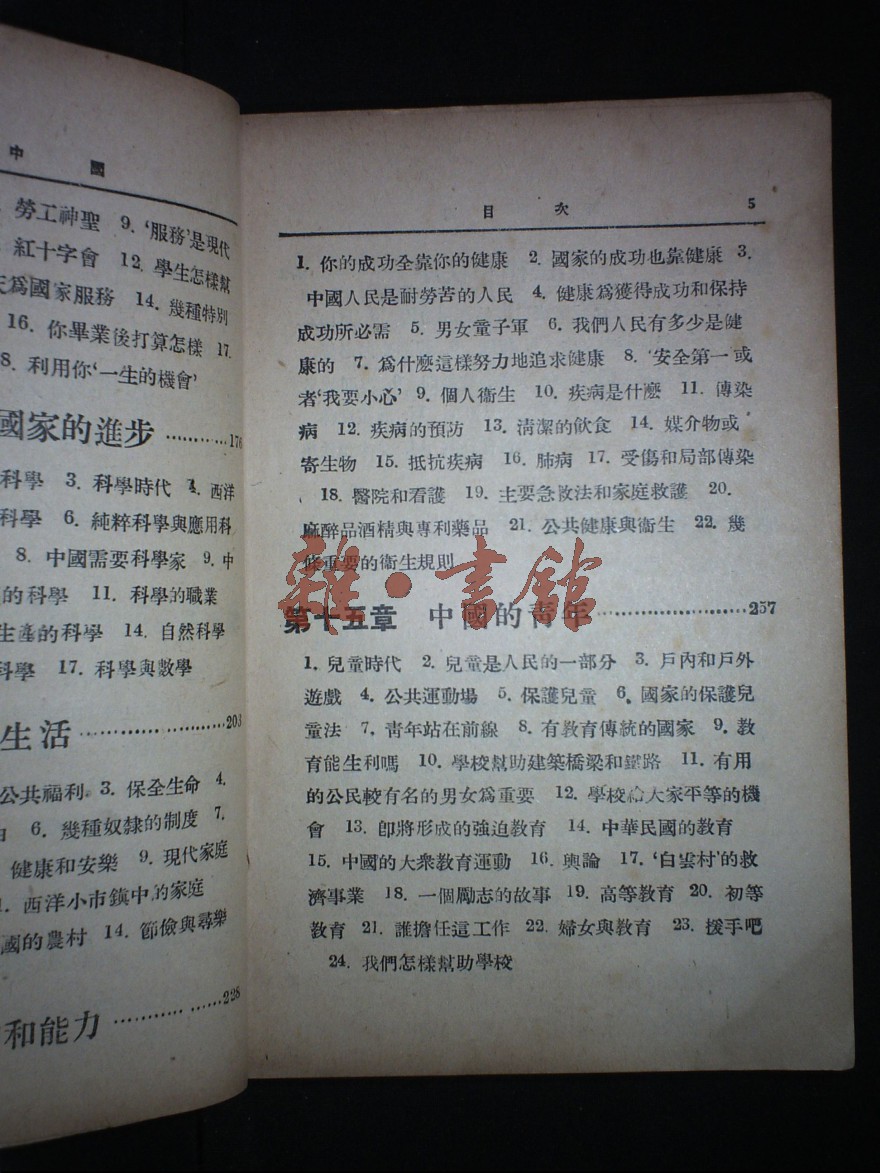 中 國
勞工神聖 9. '服務'是現代
紅十字會 12. 學生怎樣幫
爲國家服務 14. 幾種特別
16. 你畢業後打算怎樣 17.
8. 利用你'一生的機會'
國家的進步 ············176
科學 3. 科學時代 4. 西洋
科學 6. 純粹科學與應用科
8. 中國需要科學家 9. 中
的科學 11. 科學的職業
生產的科學 14. 自然科學
科學 17. 科學與數學
生活 ··················203
公共福利 3. 保全生命 4.
由 6. 幾種奴隸的制度 7.
健康和安樂 9. 現代家庭
1. 西洋小市鎮中的家庭
國的農村 14. 節儉與尋樂
和能力 ············228
目 次 5
1. 你的成功全靠你的健康 2. 國家的成功也靠健康 3.
中國人民是耐勞苦的人民 4. 健康爲獲得成功和保持
成功所必需 5. 男女童子軍 6. 我們人民有多少是健
康的 7. 爲什麼這樣努力地追求健康 8. '安全第一'或
者'我要小心' 9. 個人衞生 10. 疾病是什麼 11. 傳染
病 12. 疾病的預防 13. 清潔的飲食 14. 媒介物或
寄生物 15. 抵抗疾病 16. 肺病 17. 受傷和局部傳染
18. 醫院和看護 19. 主要急救法和家庭救護 20.
麻醉品酒精與專利藥品 21. 公共健康與衞生 22. 幾
條重要的衞生規則
雜·書館
第十五章 中國的青年 ··················257
1. 兒童時代 2. 兒童是人民的一部分 3. 戶內和戶外
遊戲 4. 公共運動場 5. 保護兒童 6. 國家的保護兒
童法 7. 青年站在前線 8. 有教育傳統的國家 9. 教
育能生利嗎 10. 學校幫助建築橋梁和鐵路 11. 有用
的公民較有名的男女爲重要 12. 學校給大家平等的機
會 13. 卽將形成的強迫教育 14. 中華民國的教育
15. 中國的大衆教育運動 16. 輿論 17. '白雲村'的救
濟事業 18. 一個勵志的故事 19. 高等教育 20. 初等
教育 21. 誰擔任這工作 22. 婦女與教育 23. 援手吧
24. 我們怎樣幫助學校